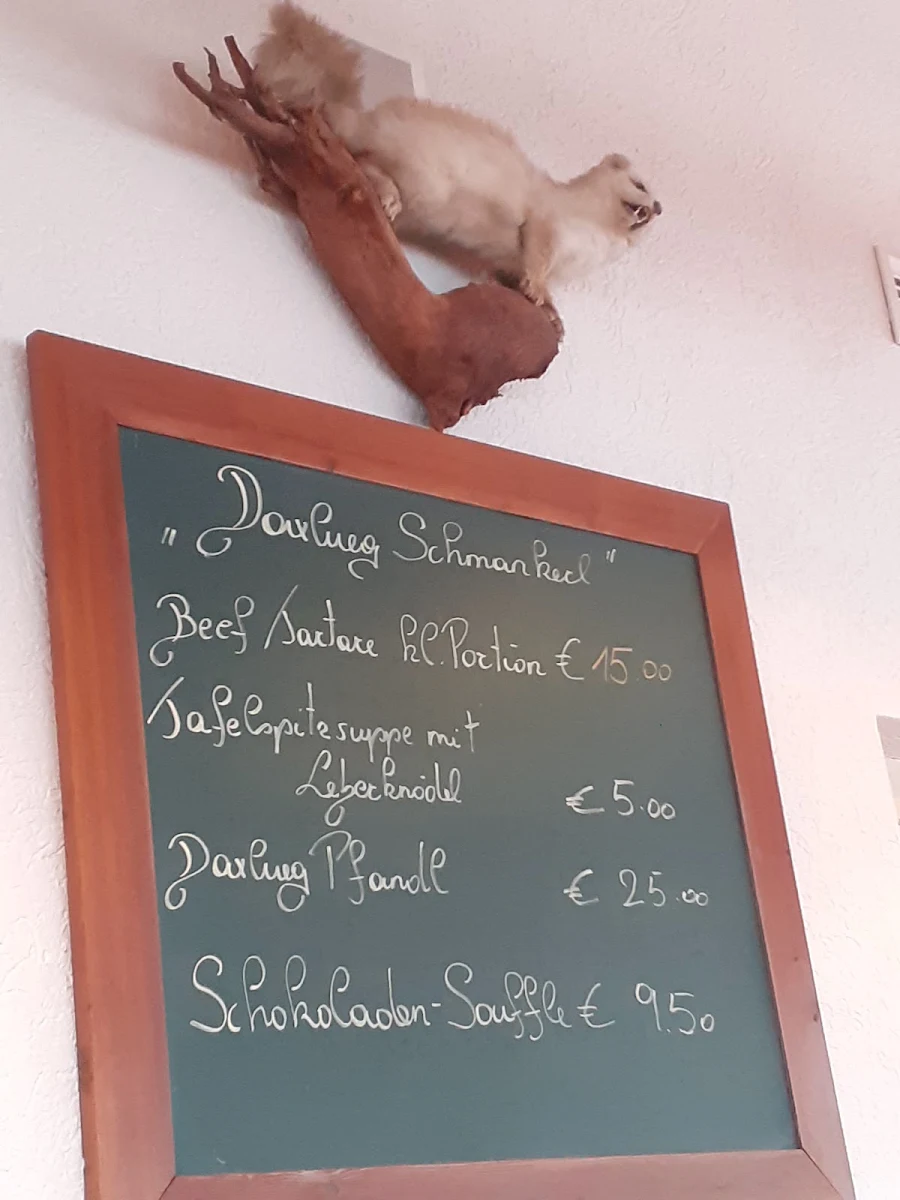 „Daxlueg Schmankerl"
Beef Tartare kl. Portion € 15.00
Tafelspitzsuppe mit
Leberknödel € 5.00
Daxlueg Pfandl € 25.00
Schokoladen-Souffle € 9.50